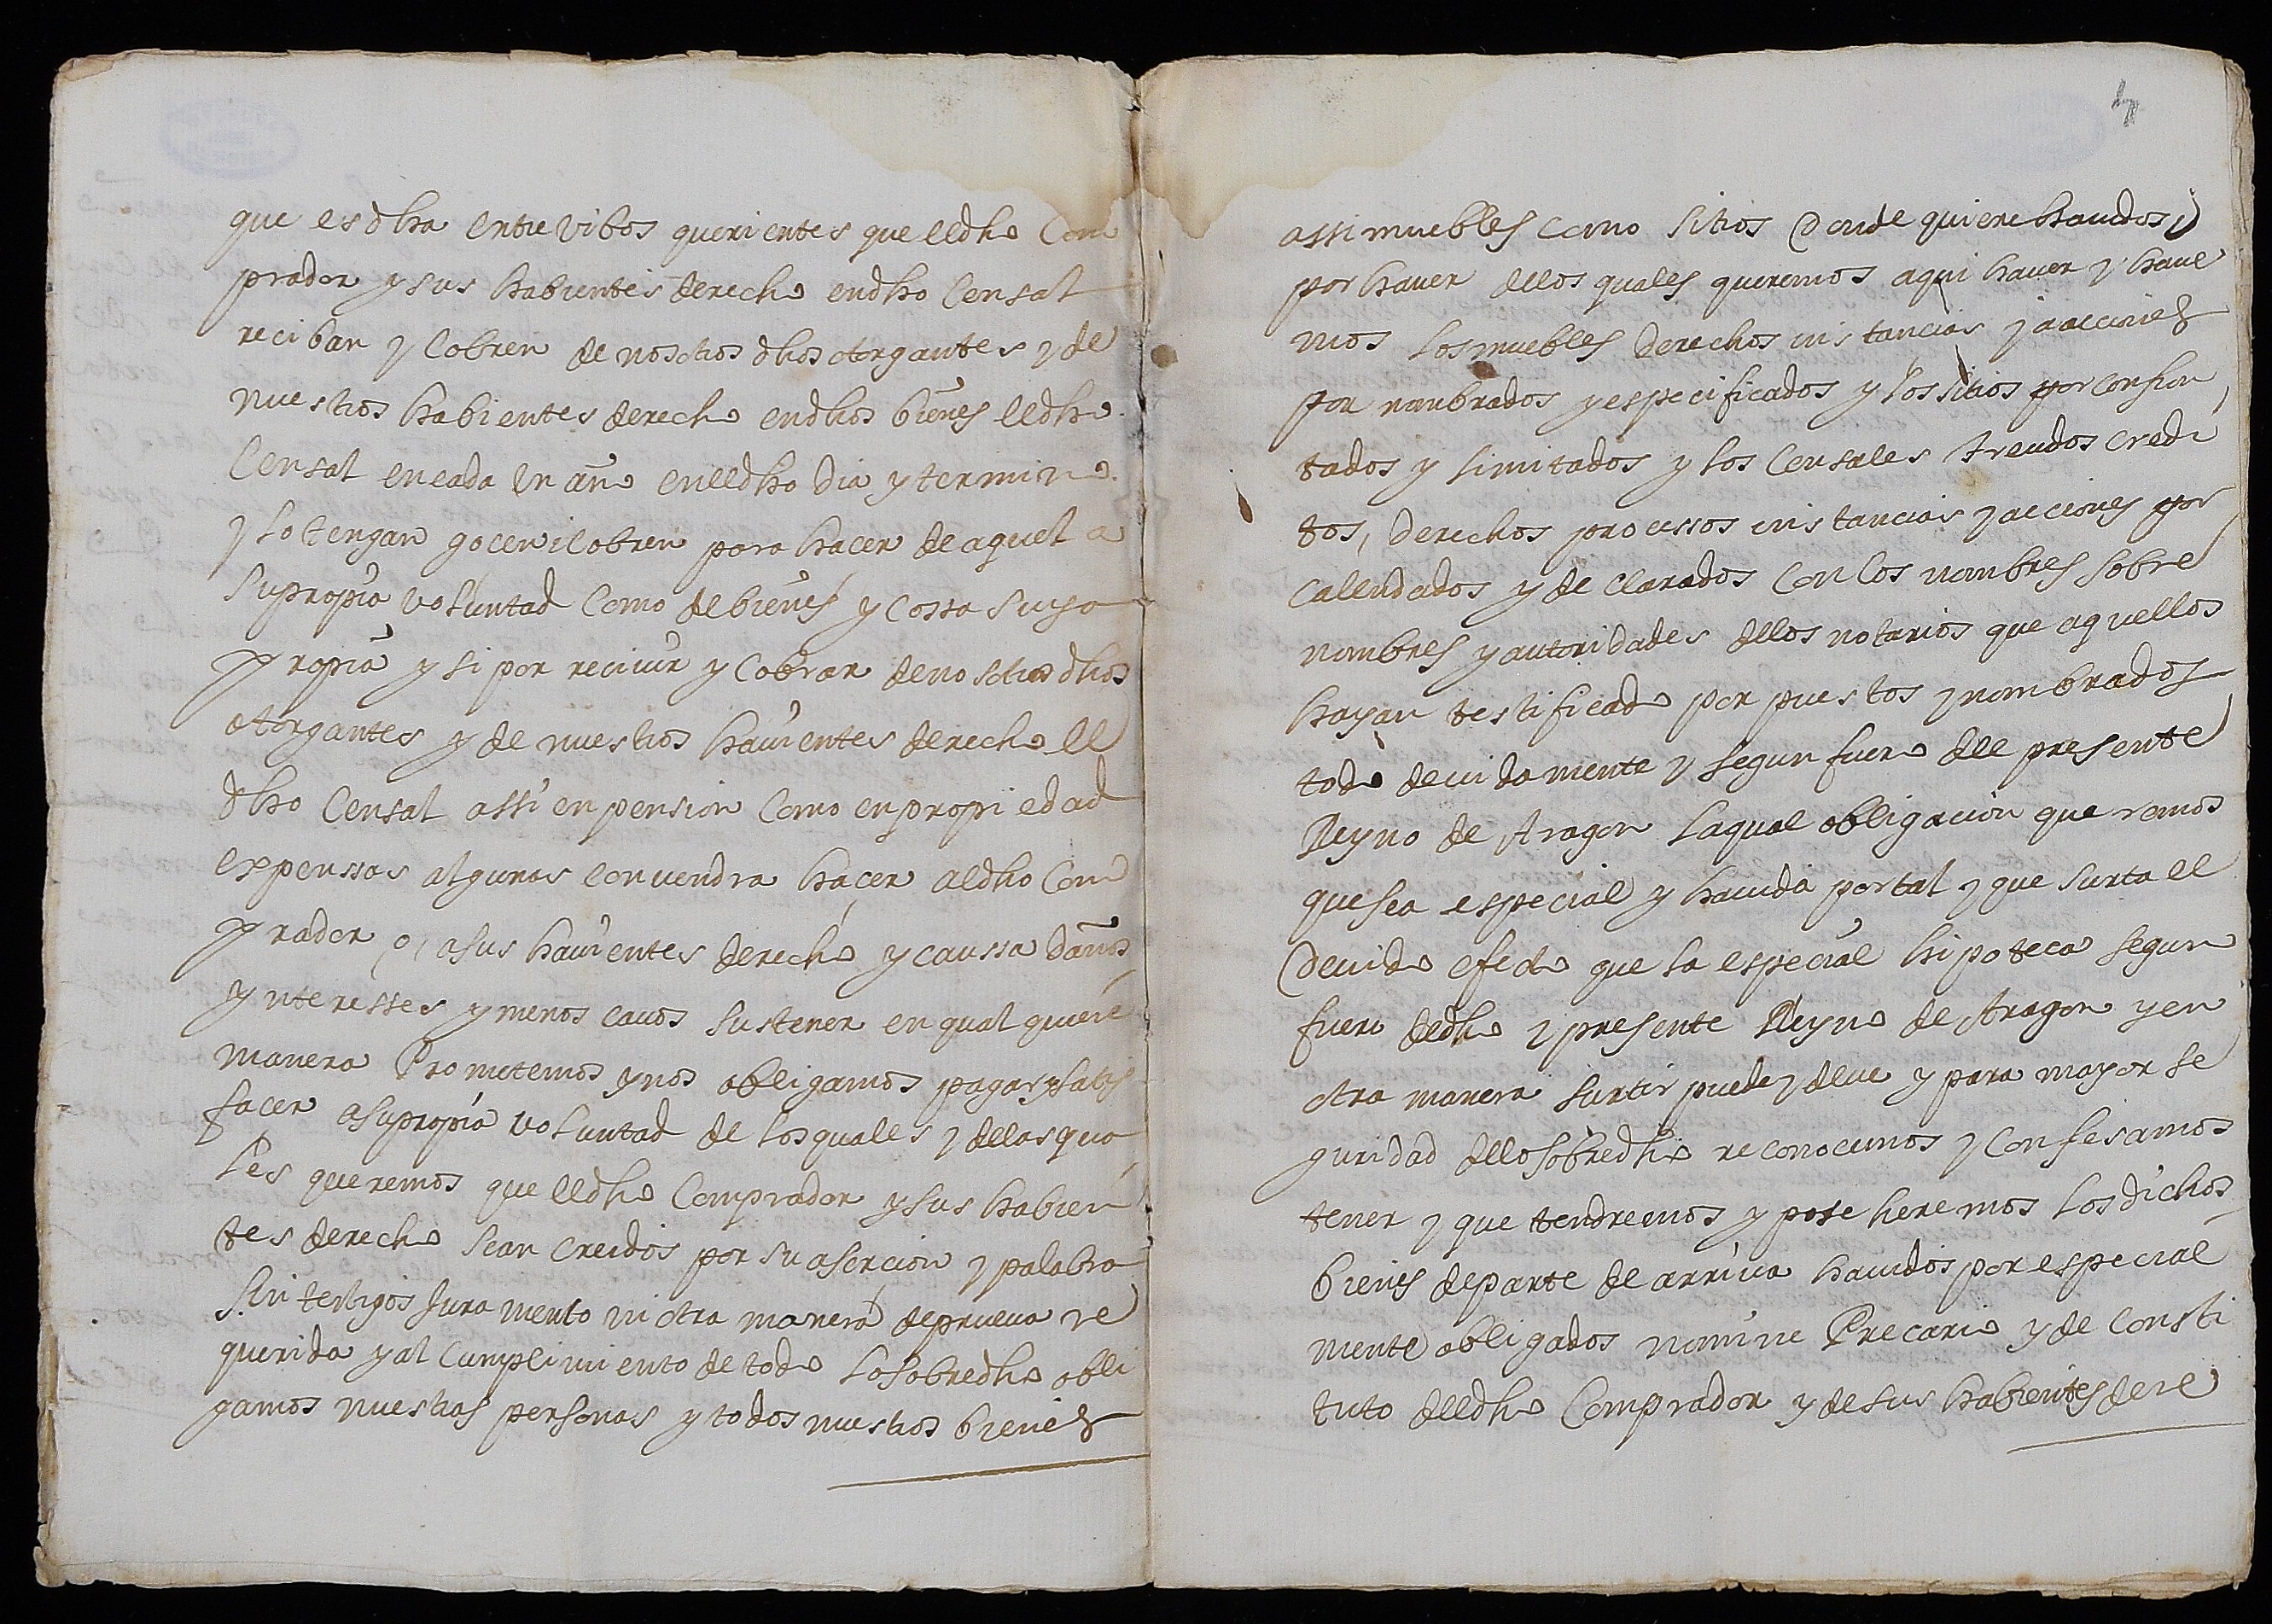 que es dha entre vibos querientes que el dho Com
prador y sus habientes derecho en dho Censal
reciban y Cobren de nosotros dhos otorgantes y de
nuestros habientes derecho en dhos bienes el dho
Censal en cada Un año en el dho Dia y termino
y lo tengan gocen i cobren para hacer de aquel a
su propia voluntad Como de bienes y Cossa suya
propia y si por recivir y Cobrar de nosotros dhos
otorgantes y de nuestros havientes derecho el
dho Censal assi en pension Como en propiedad
expenssas algunas convendra hacer al dho Com
prador o, a sus havientes derecho y caussa Daños
Ynteresses y menos cavos sustener en qual quiere
manera Prometemos y nos obligamos pagar y satis
facer a su propia voluntad de los quales y dellas qua
les queremos que el dho Comprador y sus habien
tes derecho sean creidos por su asercion y palabra
Sin testigos Jura mento ni otra manera de prueva re
querida y al Cumplimiento de todo lo sobredho obli
gamos nuestras personas y todos nuestros bienes
4
assi muebles como sitios Donde quiere havidos y
por haver dellos quales queremos aqui haver y have
mos los muebles derechos instancias y acciones
por nombrados y especificados y los sitios por confron
tados y limitados y los Censales treudos credi
tos, derechos processos instancias y acciones por
Calendados y de clarados Con los nombres sobre
nombres y autoridades dellos notarios que aquellos
hayan testificado por puestos y nombrados
todo devidamente y segun fuero del presente
Reyno de Aragon la qual obligacion queremos
que sea especial y havida por tal y que surta el
Devido efecto que la especial hipoteca segun
fuero del dho y presente Reyno de Aragon y en
otra manera surtir puede y deve y para mayor se
guridad dello sobredho reconocemos y Confesamos
tener y que tendremos y pose heremos los dichos
bienes de parte de arriva havidos por especial
mente obligados nomine Precario y de Consti
tuto del dho Comprador y de sus habientes dere